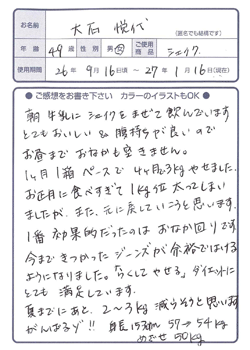 お名前
大石 悦代
（匿名でも結構です）
年齢 49歳 性別 男・女 ご使用商品 シェイク
使用期間 26年 9月 16日頃 ～ 27年 1月 16日（現在）
●ご感想をお書き下さい カラーのイラストもOK●
朝 牛乳に シェイクを まぜて 飲んでいます
とてもおいしい & 腹持ちが 良いので
お昼まで おなかも 空きません。
1ヶ月 1箱 ペースで 4ヶ月で3kg やせました。
お正月に 食べすぎて 1kg位 太ってしまい
ましたが、また、元に 戻していこうと 思います。
1番 効果的だったのは おなか回りです。
今まで きつかった ジーンズが 余裕で はける
ようになりました。「らくして やせる」ダイエットに
とても 満足しています。
夏までに あと、2～3kg 減らそうと 思います
がんばるゾ!! 身長153cm 57→54kg
めざせ 50kg